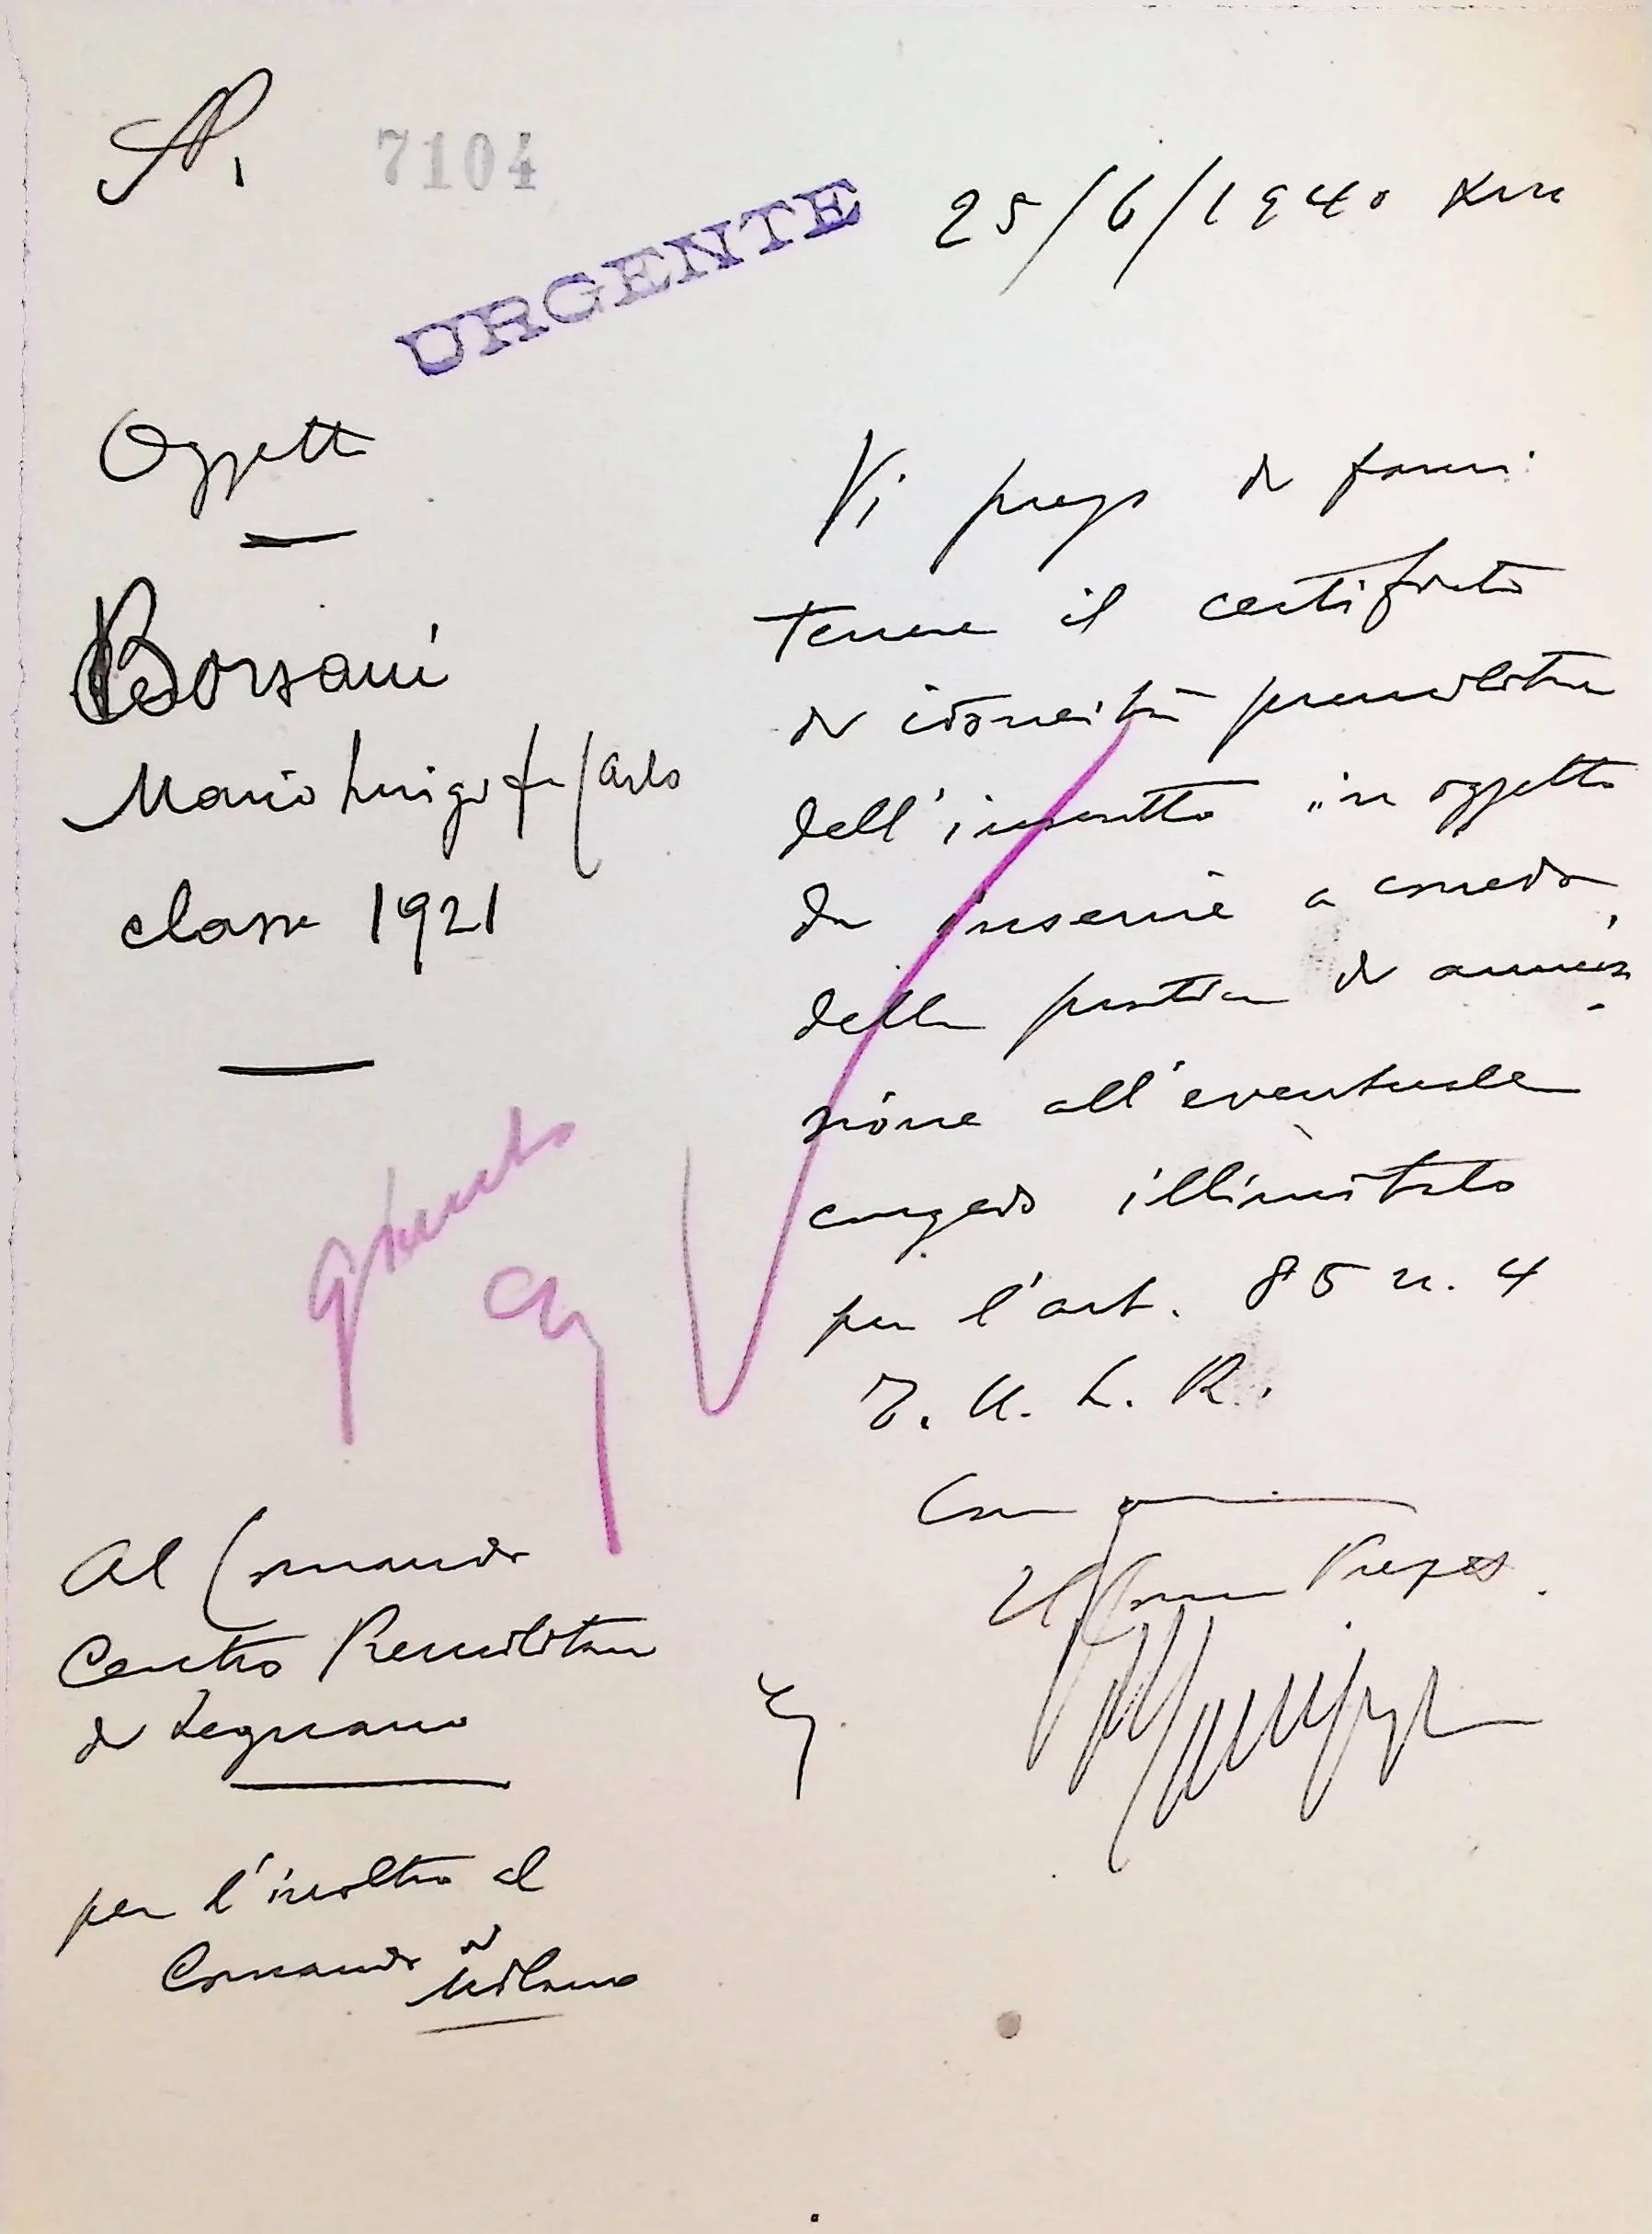 N. 7104
25/6/1940 XVIII
URGENTE
Oggetto
Borsani
Mario Luigi fu Carlo
classe 1921
Vi prego di farmi
tenere il certificato
di idoneità premilitare
dell'inscritto in oggetto
da inserire a corredo
della pratica di ammis
sione all'eventuale
congedo illimitato
per l'art. 85 n. 4
T. U. L. R.
Con
Il Comm Prefett.
Al Comando
Centro Premilitare
di Legnano
per l'inoltro al
Comando di Milano